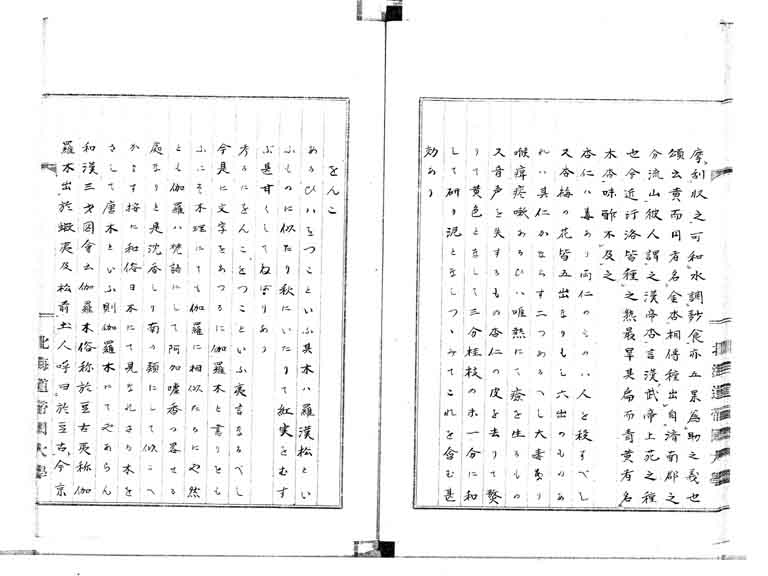 摩刮収之可和水調麨食亦五果為助之義也
頌云黄而円者名金杏相傅種出自濟南郡之
分流山彼人謂之漢帝杏言漢武帝上苑之種
也今近汴洛皆種之熟最早其扁而青黄者名
木杏味酢不及之
杏仁ハ毒あり両仁のものハ人を殺すべし
又杏梅の花皆五出なりもし六出のものあ
れハ其仁かならす二つあるへし大毒あり
喉痺痰嗽あるひハ唯熱にて瘡を生るもの
又音声を失するもの杏仁の皮を去りて熬
りて黄色となして三分桂枝のホ一分に和
して研り泥となしつゝみてこれを含む甚
効あり
をんこ
あるひハをつことといふ其木ハ羅漢松とい
ふものに似たり秋にいたりて紅実をむす
ぶ是甘くしてねばりあり
考るにをんことをつこといふ夷言なるべし
今是に文字をあつるに伽羅木と書りもと
ふにそ木理にても伽羅に相似たるにや然
とも伽羅ハ梵語にして阿加嚧香の畧せる
處なりと是沈香しり南の類にして似るへ
かなす按に和俗日本にて見なれさる木を
さして唐木といふ則伽羅木にてやあらん
和漢三才図會云伽羅木俗称於豆古夷称伽
羅木出於蝦夷及松前土人呼曰於豆古今京
北海道帝国大學